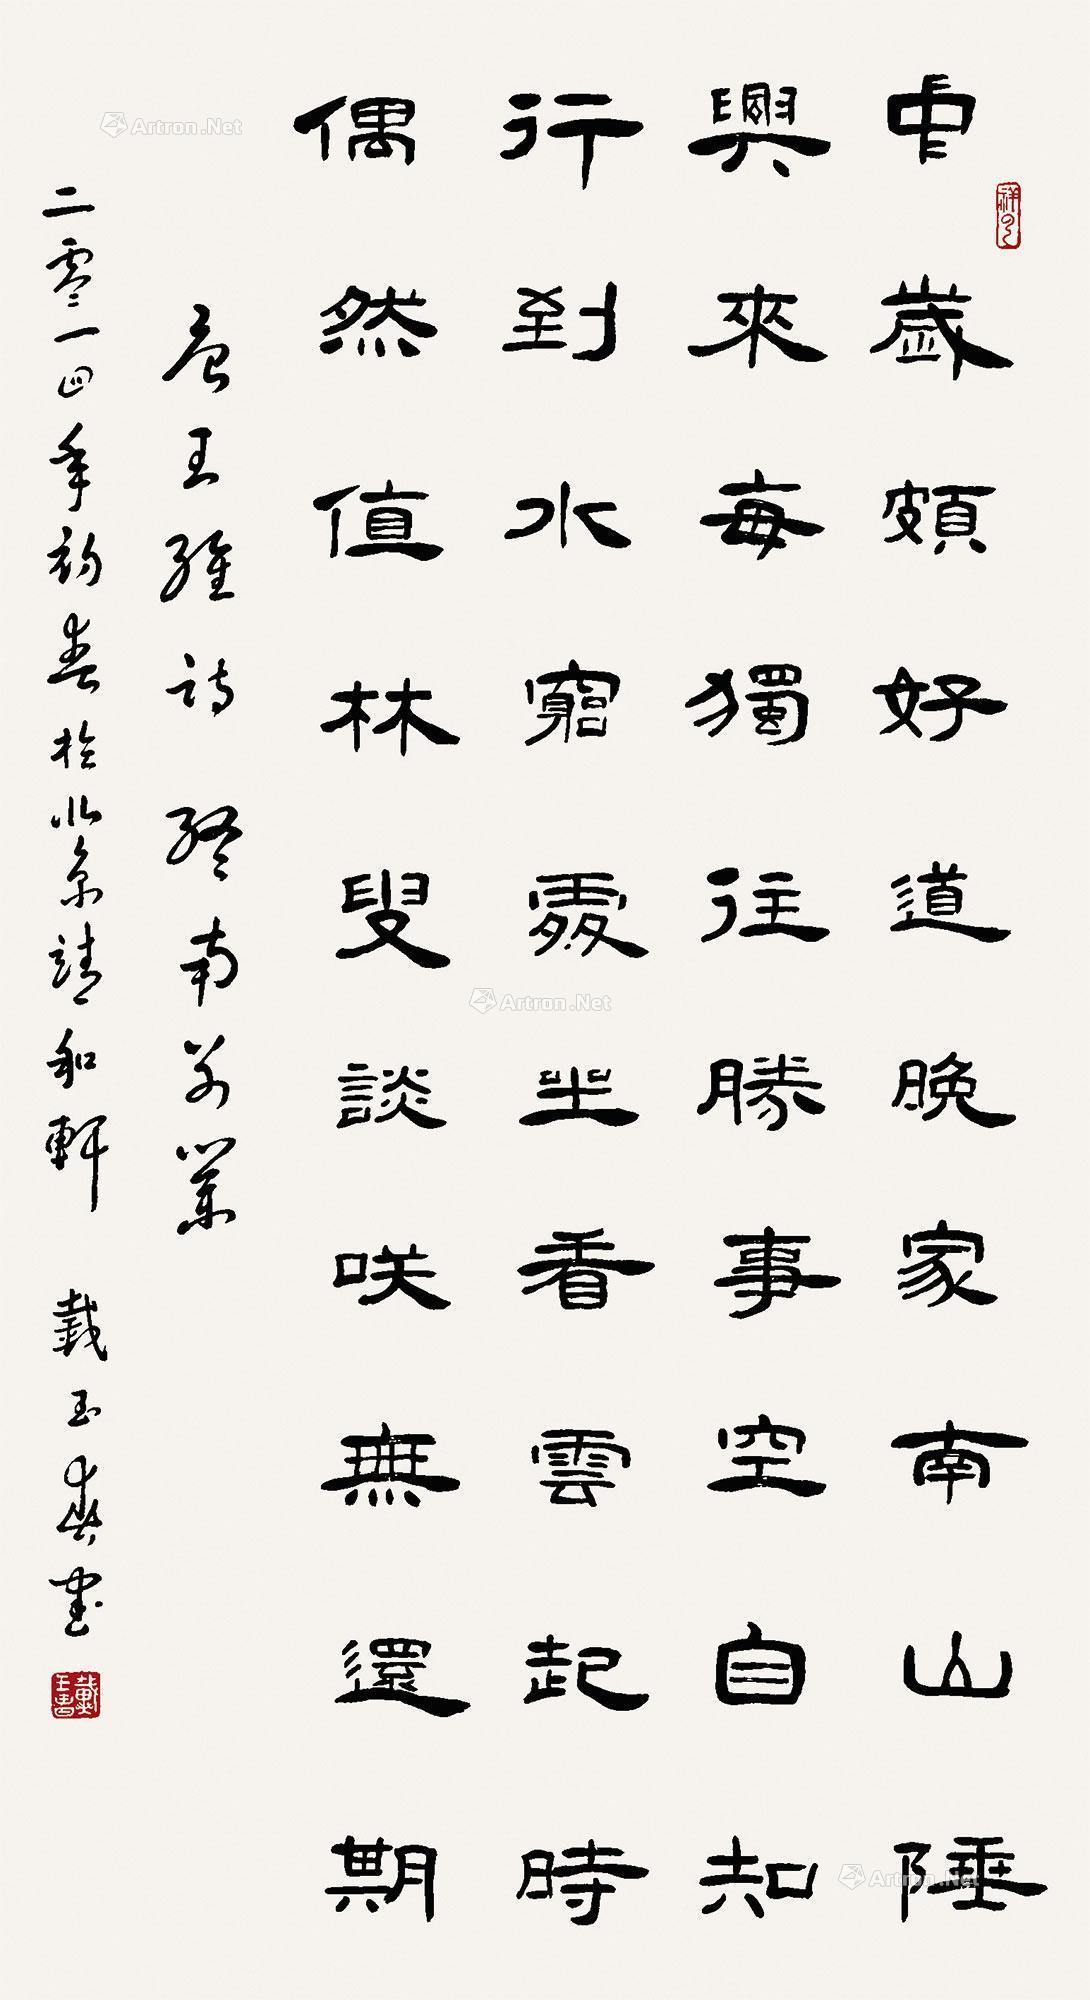 中歲頗好道晚家南山陲
興來每獨往勝事空自知
行到水窮處坐看雲起時
偶然值林叟談咲無還期
唐王維詩 終南別業
二零一四年初春於北京靖和軒 戴玉春書
Artron.Net
Artron.Net
Artron.Net